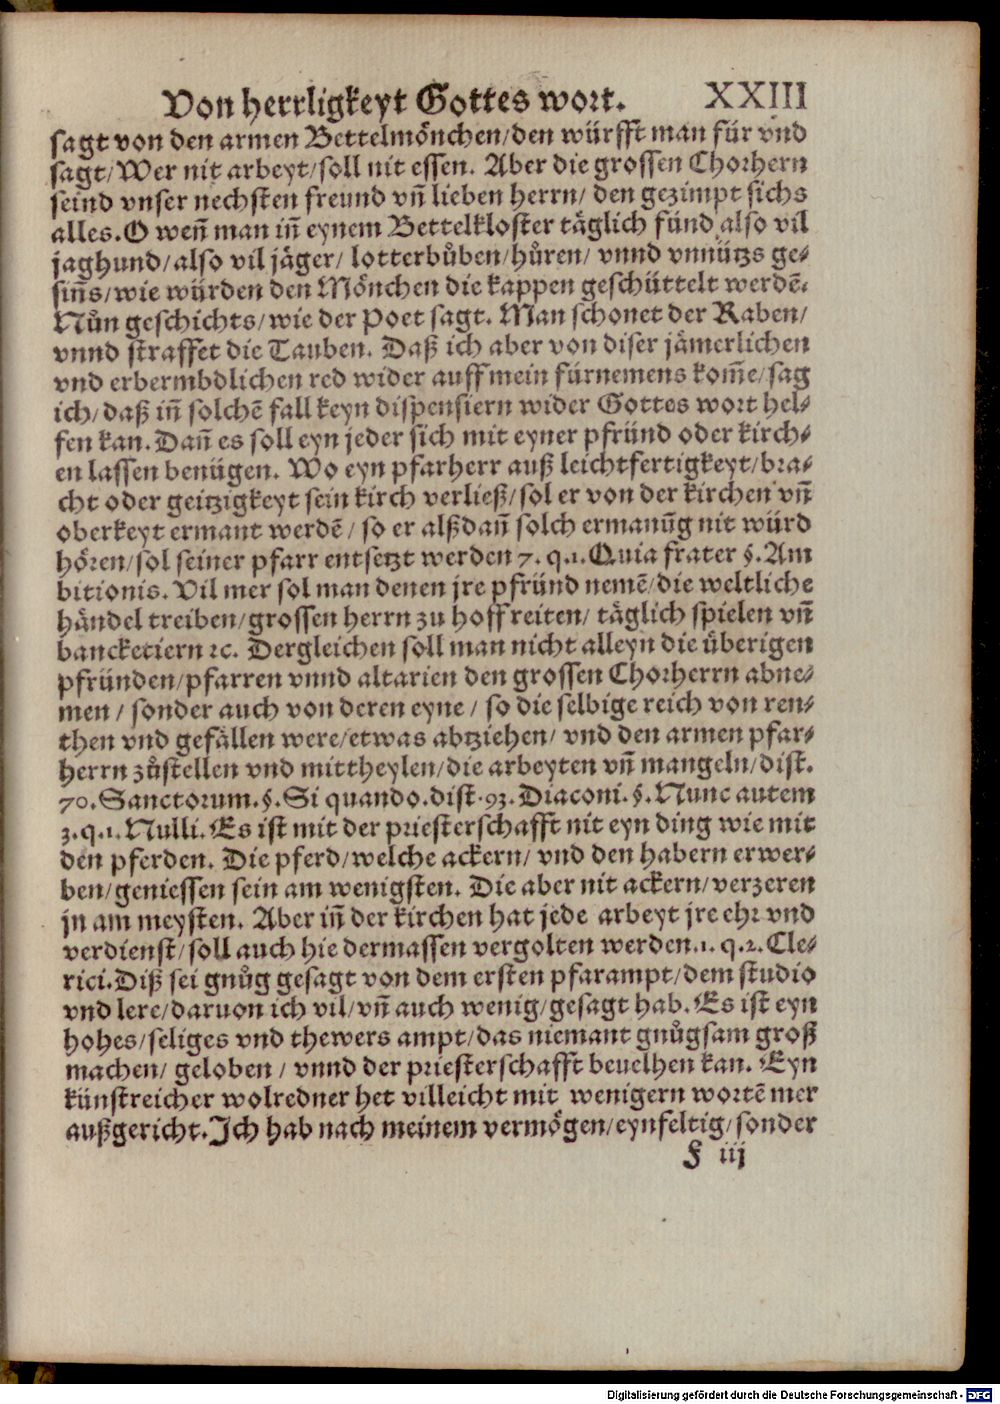 Von herrligkeyt Gottes wort. XXIII
sagt von den armen Bettelmönchen/den würfft man für vnd
sagt/Wer nit arbeyt/soll nit essen. Aber die grossen Chorhern
seind vnser nechsten freund vñ lieben herrn/ den gezimpt sichs
alles. O weñ man iñ eynem Bettelkloster täglich fünd also vil
jaghund/also vil jäger/ lotterbůben/hůren/ vnnd vnnützs ge-
siñs/wie würden den Mönchen die kappen geschüttelt werdē.
Nůn geschichts/wie der Poet sagt. Man schonet der Raben/
vnnd straffet die Tauben. Daß ich aber von diser jämerlichen
vnd erbermbdlichen red wider auff mein fürnemens kom̃e/sag
ich/daß iñ solchē fall keyn dispensiern wider Gottes wort hel-
fen kan. Dañ es soll eyn jeder sich mit eyner pfründ oder kirch-
en lassen benügen. Wo eyn pfarherr auß leichtfertigkeyt/bra-
cht oder geitzigkeyt sein kirch verließ/sol er von der kirchen vñ
oberkeyt ermant werdē/so er alßdañ solch ermanũg nit würd
hören/sol seiner pfarr entsetzt werden 7. q.1. Quia frater §. Am
bitionis. Vil mer sol man denen jre pfründ nemē/die weltliche
händel treiben/grossen herrn zu hoff reiten/ täglich spielen vñ
bancketiern ꝛc. Dergleichen soll man nicht alleyn die überigen
pfründen/pfarren vnnd altarien den grossen Chorherrn abne-
men/sonder auch von deren eyne/so die selbige reich von ren-
then vnd gefällen were/etwas abtziehen/ vnd den armen pfar-
herrn zůstellen vnd mittheylen/die arbeyten vñ mangeln/dist.
70. Sanctorum. §. Si quando. dist. 93. Diaconi. §. Nunc autem
3. q. 1. Nulli. Es ist mit der priesterschafft nit eyn ding wie mit
den pferden. Die pferd/welche ackern/ vnd den habern erwer-
ben/geniessen sein am wenigsten. Die aber nit ackern/verzeren
jn am meysten. Aber iñ der kirchen hat jede arbeyt jre ehr vnd
verdienst/soll auch hie dermassen vergolten werden.1. q.2. Cle-
rici. Diß sei gnůg gesagt von dem ersten pfarampt/dem studio
vnd lere/daruon ich vil/vñ auch wenig/gesagt hab. Es ist eyn
hohes/seliges vnd thewers ampt/das niemant gnůgsam groß
machen/ geloben/ vnnd der priesterschafft beuelhen kan. Eyn
künstreicher wolredner het villeicht mit wenigern wortē mer
außgericht. Ich hab nach meinem vermögen/eynfeltig/sonder
F iij
Digitalisierung gefördert durch die Deutsche Forschungsgemeinschaft - DFG